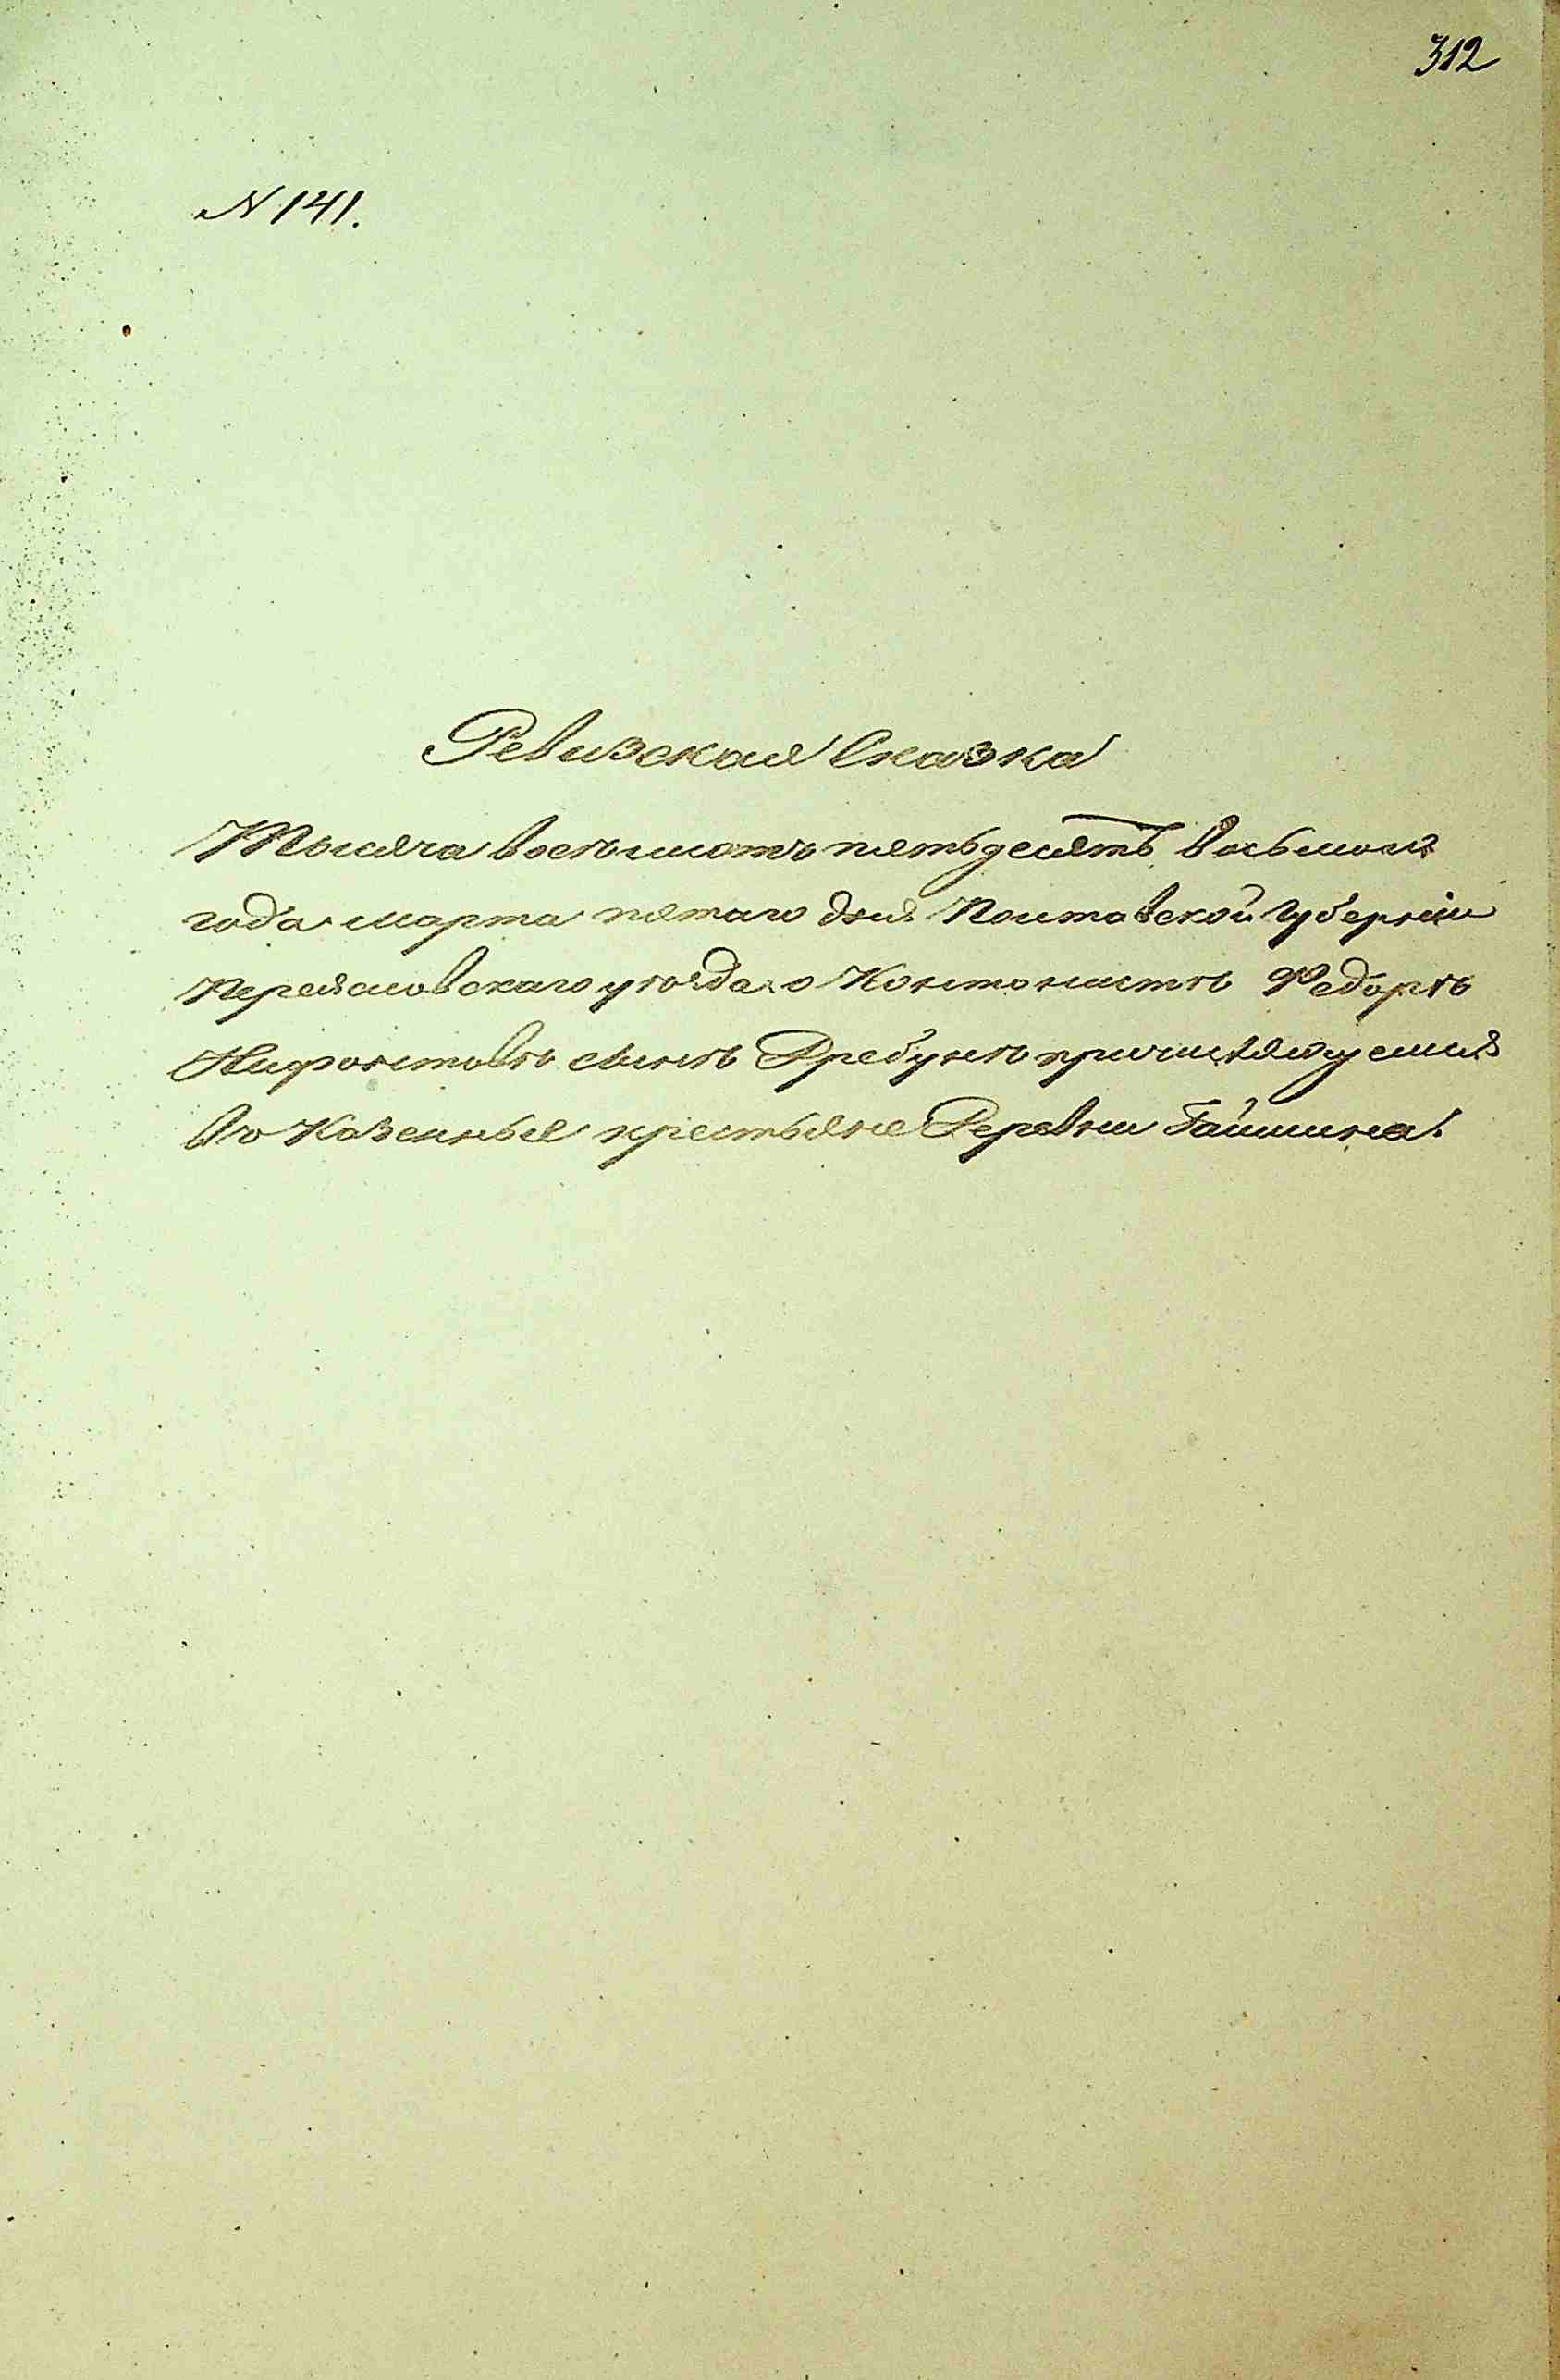 312
N 141.
Ревизская Сказка
Тысяча восемьсотъ пятьдесятъ восьмаго
года марта пятаго дня Полтавской Губерніи
Переяславскаго уѣзда о Кантонистѣ Федорѣ
сынѣ Дребунѣ причисляющемся
въ Казенные крестьяне Деревни Гайшина.